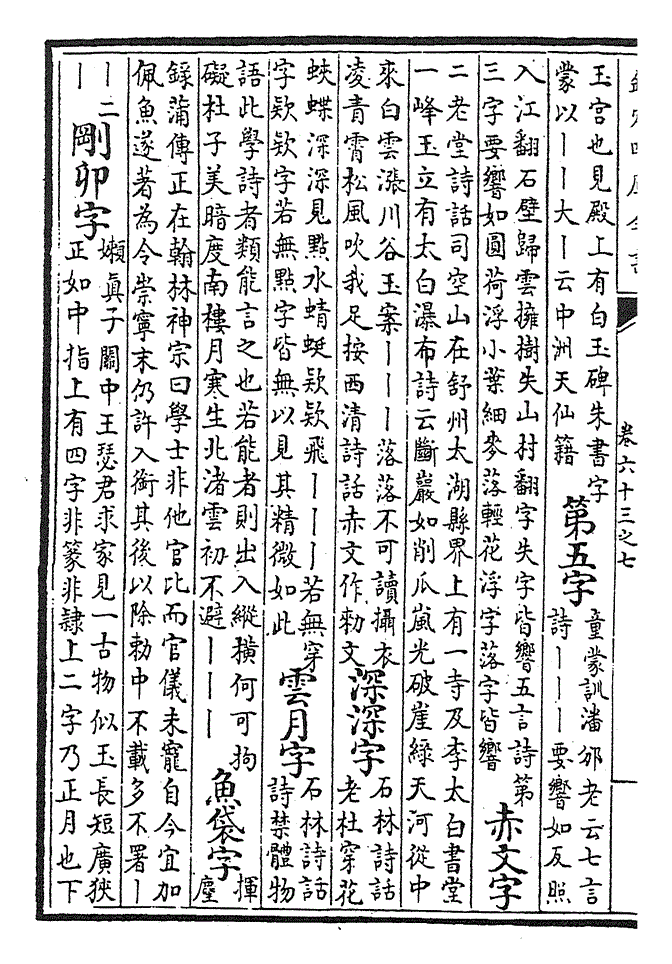 卷六十三之七
玉宮也見殿上有白玉碑朱書字
蒙以丨丨大丨云中洲天仙籍
第五字
童蒙訓潘邠老云七言
詩丨丨丨要響如反照
入江翻石壁歸雲擁樹失山村翻字失字皆響五言詩第
三字要響如圓荷浮小葉細麥落輕花浮字落字皆響
赤文字
二老堂詩話司空山在舒州太湖縣界上有一寺及李太白書堂
一峰玉立有太白瀑布詩云斷巖如削瓜嵐光破崖綠天河從中
來白雲漲川谷玉案丨丨丨落落不可讀攝衣
凌青霄松風吹我足按西清詩話赤文作勅文
深深字
石林詩話
老杜穿花
蛺蝶深深見點水蜻蜓欵欵飛丨丨丨若無穿
字欵欵字若無點字皆無以見其精微如此
雲月字
石林詩話
詩禁體物
語此學詩者類能言之也若能者則出入縱橫何可拘
礙杜子美暗度南樓月寒生北渚雲初不避丨丨丨
魚袋字
揮
麈
錄蒲傳正在翰林神宗曰學士非他官比而官儀未寵自今宜加
佩魚遂著為令崇寧末仍許入銜其後以除勅中不載多不署丨
丨二
丨
剛卯字
嬾真子關中王瑟君求家見一古物似玉長短廣狹
正如中指上有四字非篆非隸上二字乃正月也下